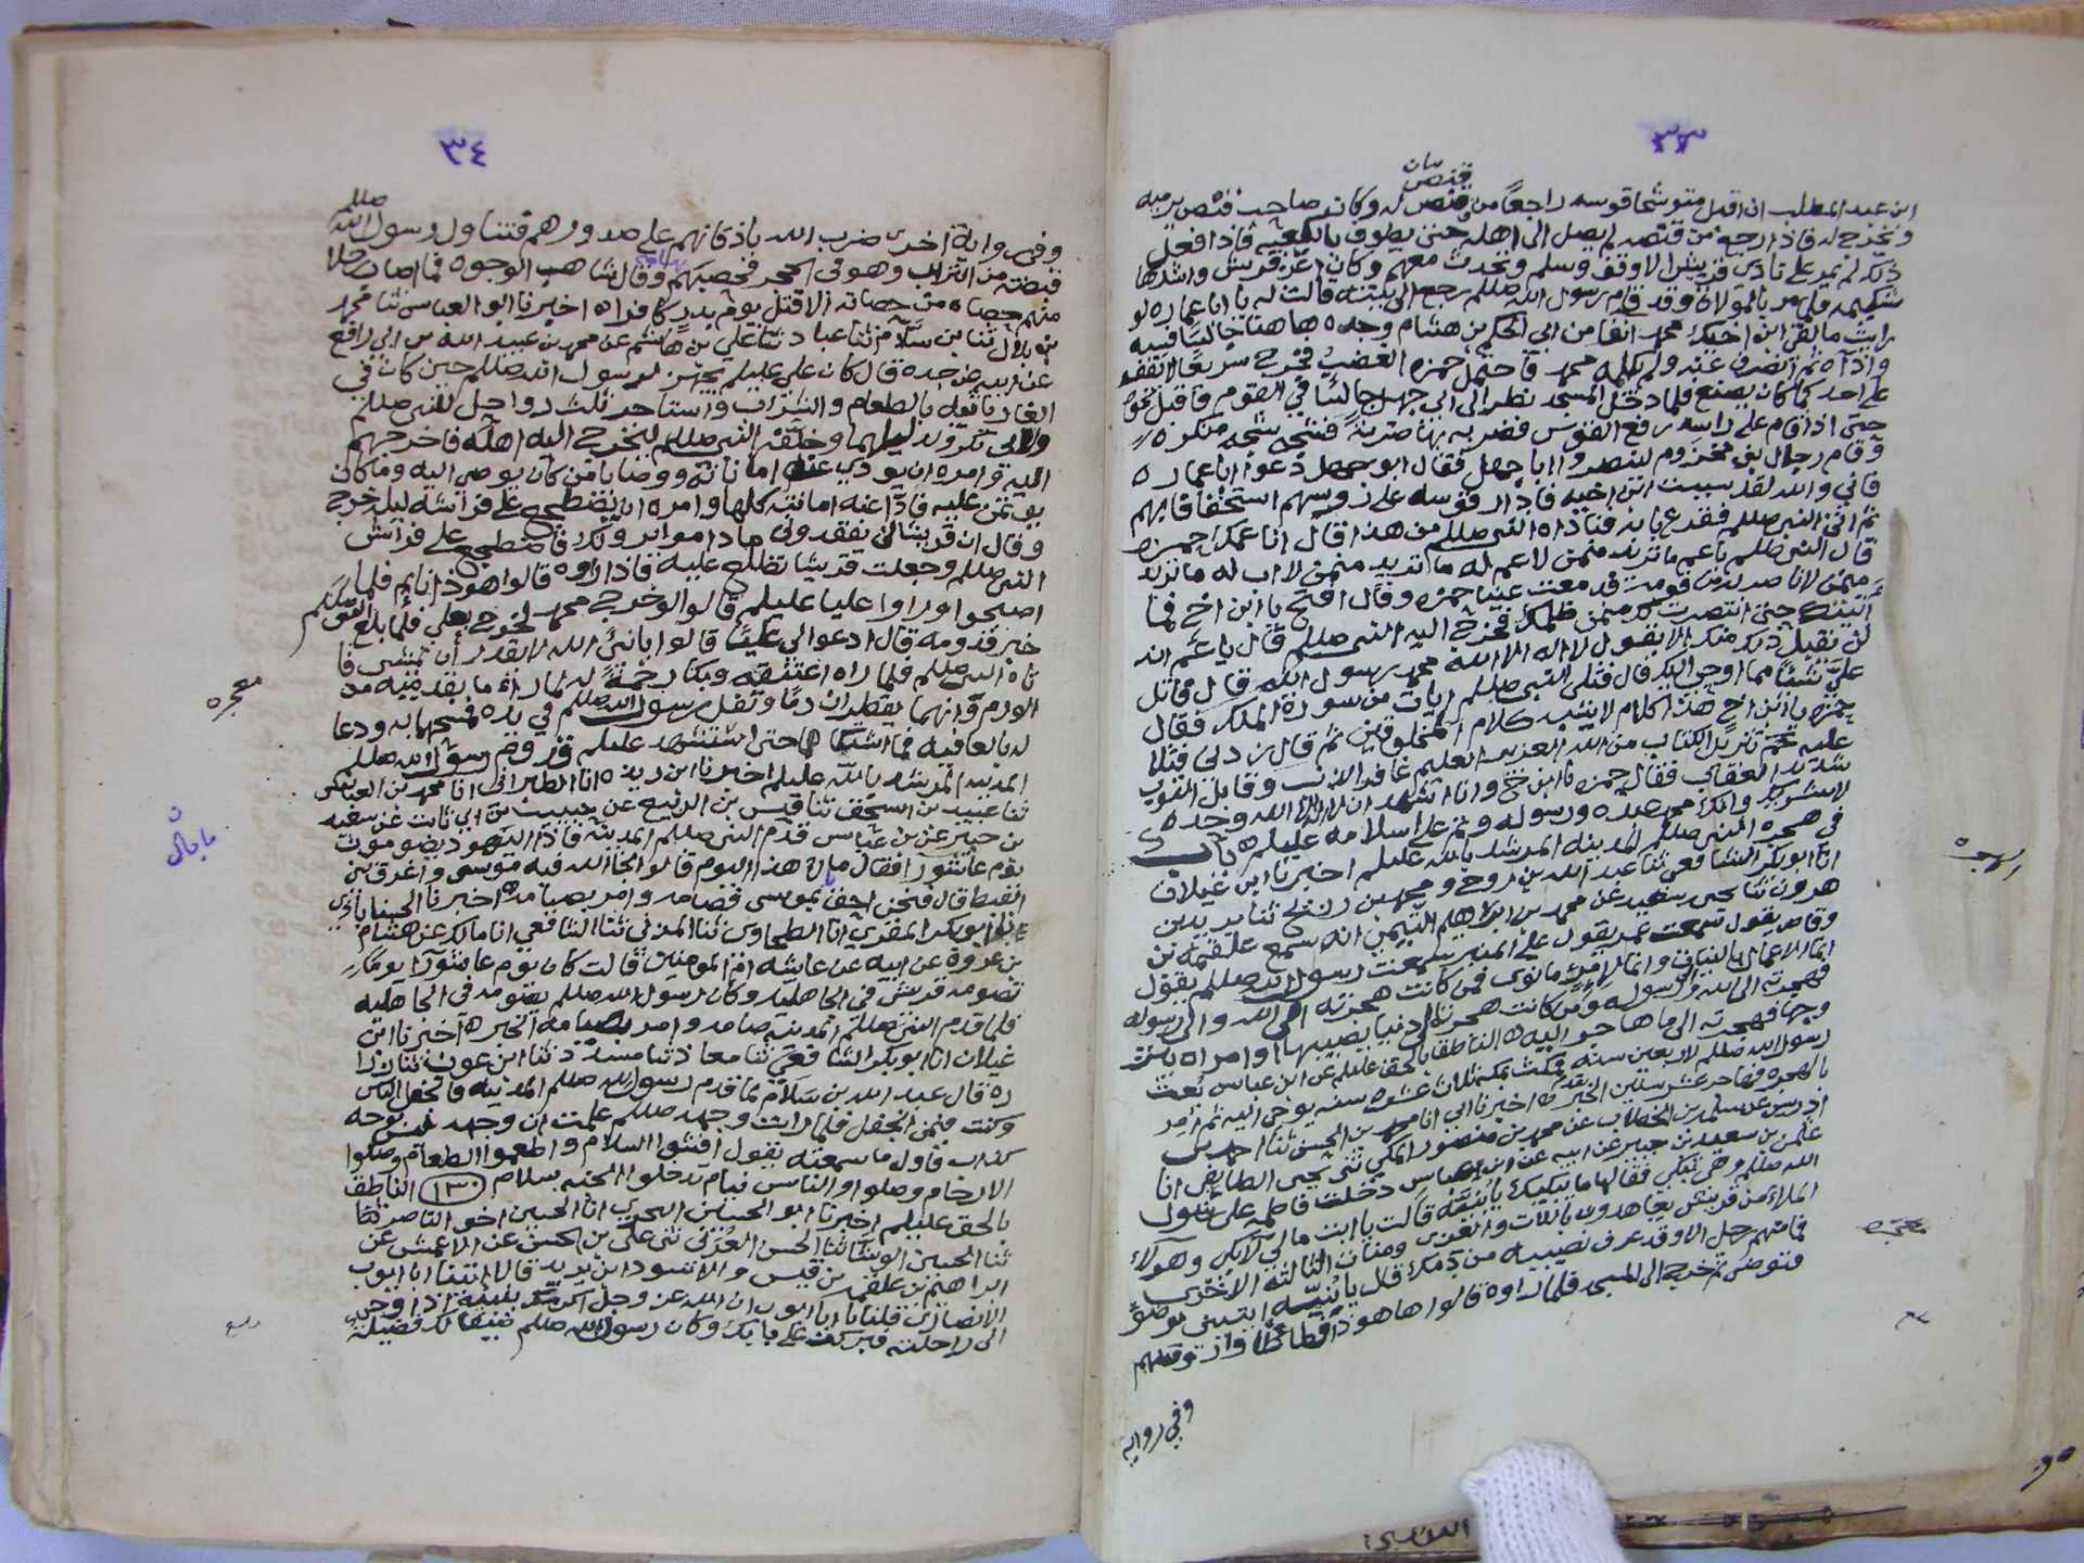 ٣٣
ابن عبد المطلب ان اقبل متوشحا قوسه راجعا من قنص له وكان صاحب قنص يرميه
ويخرج له فاذا رجع من قنصه لم يصل الى اهله حتى يطوف بالكعبة فاذا فعل
ذلك لم يمر على نادى قريش الا وقف وسلم وتحدث معهم وكان اعز قريش واشدها
شكيمه فلما مر بالمولاة وقد قام رسول الله صللم رجع الى بيته قالت له يا ابا عماره لو
رايت ما لقى ابن اخيك محمد انفا من ابي الحكم بن هشام وجده ها هنا جالسا فسبه
واذاه ثم انصرف عنه ولم يكلمه محمد فاحتمل حمزه الغضب فخرج سريعا لا يقف
على احد كما كان يصنع فلما دخل المسجد نظر الى ابي جهل جالسا في القوم فاقبل نحوه
حتى اذا قام على راسه رفع القوس فضربه بها ضربة فشجه شجه منكره
وقام رجال بني مخزوم لينصروا ابا جهل فقال ابو جهل دعوا ابا عماره
فاني والله لقد سببت ابن اخيه فادار قوسه على روسهم استخفافا بهم
ثم اتى النبي صللم فقدع بابه فناداه النبي صللم من هذا قال انا عمك حمزه
قال النبي صللم يا عم ما تريد ممن لا عم له ما تريد ممن لا اب له ما تريد
ممن لا ناصر له من قومه فدمعت عينا حمزه وقال افتح يا ابن اخي فما
اتيتك حتى انتصرت لك ممن ظلمك فخرج اليه النبي صللم قال يا عم انه
لن نقبل ذلك منك الا بقول لا اله الا الله محمد رسول الله قال فاتل
علي شيئا مما اوحي اليك قال فتلى النبي صللم ايات من سورة الملك فقال
حمزه يا ابن اخي هذا كلام لا يشبه كلام المخلوقين ثم قال زدني فتلا
عليه حم تنزيل الكتاب من الله العزيز العليم غافر الذنب وقابل التوب
شديد العقاب فقال حمزه يا ابن اخ وانا اشهد ان لا اله الا الله وحده
لا شريك له وانك محمد عبده ورسوله وتم على اسلامه عليلم باب
في هجره النبي صللم المدينه المرشد بالله عليلم اخبرنا ابن غيلان
انا ابو بكر الشافعي ثنا عبد الله بن روح ومحمد بن رنح ثنا يزيد بن
هرون ثنا يحيى بن سعيد عن محمد بن ابراهيم التيمي انه سمع علقمه بن
وقاص يقول سمعت عمر يقول على المنبر سمعت رسول الله صللم يقول
انما الاعمال بالنيات وانما لامرئ ما نوى فمن كانت هجرته الى الله والى رسوله
فهجرته الى الله ورسوله ومن كانت هجرته الى دنيا يصيبها او امراه يتز
وجها فهجرته الى ما هاجر اليه الناطق بالحق عليلم عن ابن عباس بعث
رسول الله صللم لاربعين سنه فمكث بمكه ثلاث عشره سنه يوحى اليه ثم امر
بالهجره فهاجر عشر سنين الخبر اخبرنا ابي انا محمد بن الحسن ثنا احمد بن
ادريس عن سلمه بن الخطاب عن محمد بن منصور المكي ثنى يحيى الطايفي انا
عثمن بن سعيد بن جبير عن ابيه عن ابن عباس دخلت فاطمه على رسول
الله صللم وهي تبكي فقال لها ما يبكيك يا بنيه قالت يا ابت مالي لا ابكي وهولاء
الملاء من قريش يتعاهدون باللات والعزى ومنات الثالثه الاخرى
فما منهم رجل الا وقد عرف نصيبه من دمك قال يا بنيه ايتيني بوضو
فتوضى ثم خرج الى المسجد فلما راوه قالوا ها هو ذا
وفي روايه
٣٤
وفي روايه اخرى ضرب الله باذقانهم على صدورهم فتناول رسول الله صللم
قبضه من التراب وهو في الحجر فحصبهم وقال شاهت الوجوه فما اصاب رجلا
منهم حصاه من حصاته الا قتل يوم بدر كافرا اخبرنا ابو العباس ثنا محمد
بن بلال ثنا بن سلام ثنا عباد ثنا علي بن هاشم عن محمد بن عبيد الله بن ابي رافع
عن ابيه عن جده قال كان علي عليلم يجهز لرسول الله صللم حين كان في
الغار ياتيه بالطعام والشراب واستاجر ثلث رواحل للنبي صللم
ولابي بكر ودليلهما وخلفه النبي صللم ليخرج اليه اهله فاخرجهم
اليه وامره ان يودي عنه اماناته ووصايا من كان يوصي اليه وما كان
يوتمن عليه فادا عنه امانته كلها وامره ان يضطجع على فراشه ليله خرج
وقال ان قريشا لن يفقدوني ما داموا يرونك فاضطجع على فراش
النبي صللم وجعلت قريش تطلع عليه فاذا راوه قالوا هو ذا نايم فلما
اصبحوا وراوا عليا عليلم قالوا لو خرج محمد لخرج بعلي فلما بلغ القوم صللم
خبر قدومه قال ادعوا لي عليا قالوا يا نبي الله لا يقدر ان يمشي فا
تاه النبي صللم فلما راه اعتنقه وبكا رحمة له لما راى ما بقدميه من
الورم وانهما يقطران دما وتفل رسول الله صللم في يده فمسحها به ودعا
له بالعافيه فما اشتكاهما حتى استشهد عليلم قدوم رسول الله صللم
المدينه المرشد بالله عليلم اخبرنا ابن ريذه انا الطبراني انا محمد بن العباس
ثنا عبيد بن اسحق ثنا قيس بن الربيع عن حبيب بن ابي ثابت عن سعيد
بن جبير عن بن عباس قدم النبي صللم المدينه فاذا اليهود يصومون
يوم عاشورا فقال ما هذا اليوم قالوا نجا الله فيه موسى واغرق
القبط قال فنحن احق بموسى فصامه وامر بصيامه اخبرنا
ابو بكر المقري انا الطحاوي ثنا المزني ثنا الشافعي انا مالك عن هشام
بن عروه عن ابيه عن عايشه ام المومنين قالت كان يوم عاشورا يوما
تصومه قريش في الجاهليه وكان رسول الله صللم يصومه في الجاهليه
فلما قدم النبي صللم المدينه صامه وامر بصيامه الخبر اخبرنا ابن
غيلان انا ابو بكر الشافعي ثنا معاذ ثنا مسدد ثنا ابن عون ثنا زرا
ره قال عبد الله بن سلام لما قدم رسول الله صللم المدينه فانجفل الناس
وكنت فيمن انجفل فلما رايت وجهه صللم علمت ان وجهه ليس بوجه
كذاب فاول ما سمعته يقول افشوا السلام واطعموا الطعام وصلوا
الارحام وصلوا والناس نيام تدخلوا الجنه بسلام ١٣٠ الناطق
بالحق عليلم اخبرنا ابو الحسين البحري انا الحسين اخو الناصر ثنا
ثنا الحسين الوشا ثنا الحسن العرني ثنى علي بن الحسن عن الاعمش عن
ابراهيم بن علقمه بن قيس والاسود ابن يزيد قالا اتينا ابا ايوب
الانصاري فقلنا يا ابا ايوب ان الله عز وجل اكرمك بنبيه اذ اوحى
الى راحلته فبركت على بابك وكان رسول الله صللم ضيفا لك فضيله
معجزه
ما بال ن